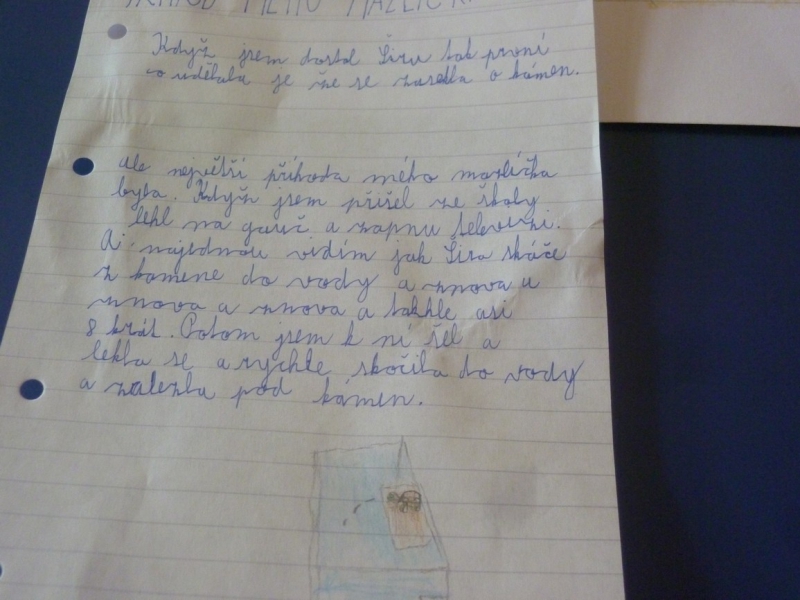 MÉHO
Když jsem dostal Širu tak první
co udělala je že se zasekla o kámen.
ale největší příhoda mého mazlíčka
byla. Když jsem přišel ze školy
lehl na gauč a zapnu televizi.
Ai najednou vidím jak Šira skáče
z kamene do vody a znova a
znova a znova a takhle asi
8 krát. Potom jsem k ní šel a
lekla se a rychle skočila do vody
a zalezla pod kámen.